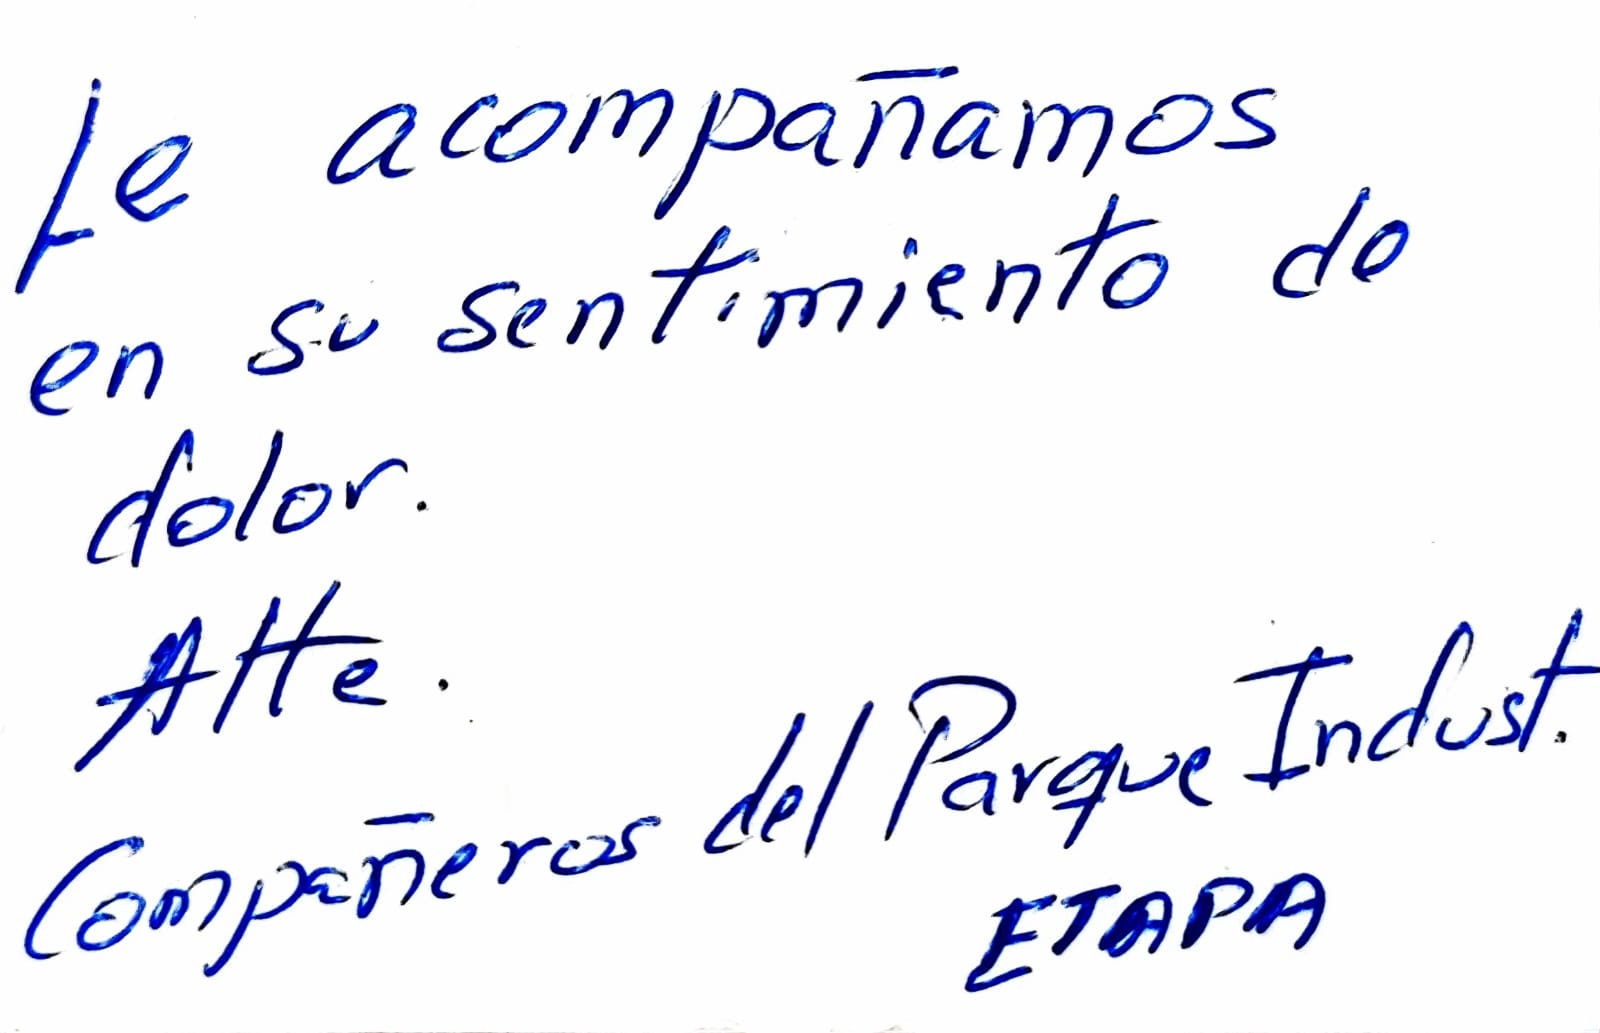 Le acompañamos
en su sentimiento de
dolor.
Atte.
Compañeros del Parque Indust.
ETAPA